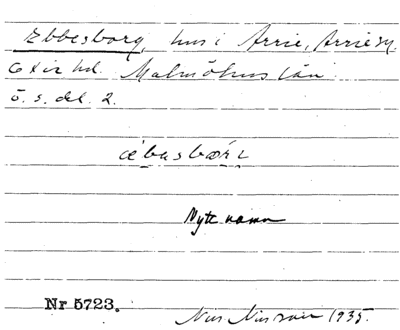 Ebbesborg, hus i Arrie, Arrie sn.
Oxie hd. Malmöhus län
ö. s. del. 2.
Nytt namn
Nr 5723.
Nils Nilsson 1935.